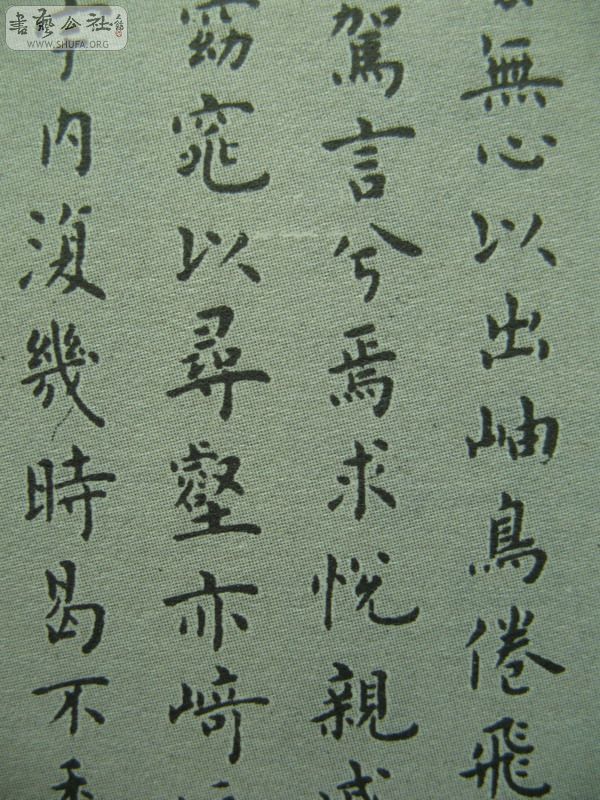 無心以出岫鳥倦飛
駕言兮焉求悅親戚
窈窕以尋壑亦崎
宇内復幾時曷不委
書藝公社
WWW.SHUFA.ORG